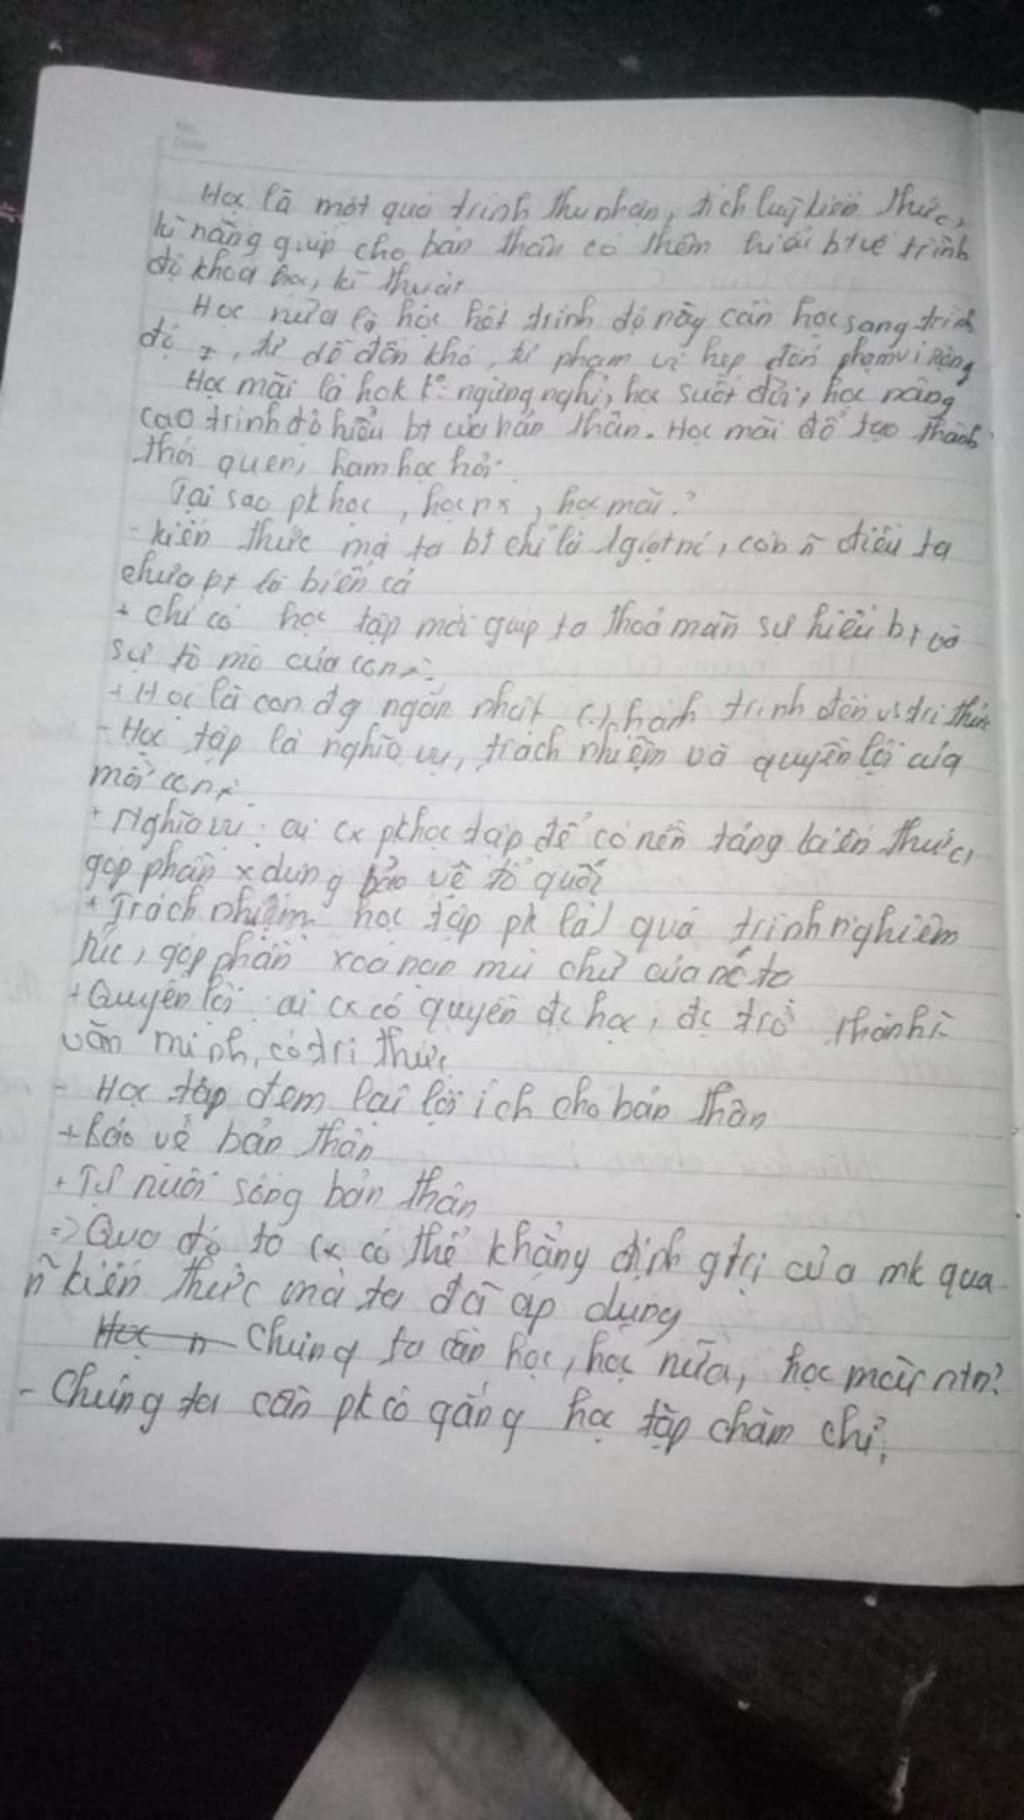 Học là một quá trình thu nhận, tích luỹ kiến thức,
kĩ năng giúp cho bản thân có thêm hiểu bt về trình
độ khoa học, kĩ thuật
Học nữa là học hết trình độ này cần học sang trình
độ ≠, từ dễ đến khó, từ phạm vi hẹp đến phạm vi rộng
Học mãi là hok k° ngừng nghỉ, học suốt đời, học nâng
cao trình độ hiểu bt của bản thân. Học mãi để tạo thành
thói quen, ham học hỏi.
Tại sao pk học, học nx, học mãi?
- kiến thức mà ta bt chỉ là 1 giọt nc, còn n~ điều ta
chưa bt là biển cả
+ chỉ có học tập mới giúp ta thoả mãn sự hiểu bt và
sự tò mò của con ng`.
+ Học là con đg ngắn nhất (.) hành trình đến vs tri thức
- Học tập là nghĩa vụ, trách nhiệm và quyền lợi của
mỗi con ng`.
+ Nghĩa vụ: ai cx pk học tập để có nền tảng kiến thức,
góp phần x dựng bảo vệ tổ quốc
+ Trách nhiệm học tập pk là 1 quá trình nghiêm
túc, góp phần xoá nạn mù chữ của nc ta
+ Quyền lợi: ai cx có quyền đc học, đc trở thành ng`
văn minh, có tri thức
- Học tập đem lại lợi ích cho bản thân
+ Bảo vệ bản thân
+ Tự nuôi sống bản thân
=> Qua đó ta cx có thể khẳng định gtrị của mk qua
n~ kiến thức mà ta đã áp dụng
Học n Chúng ta cần học, học nữa, học mãi ntn?
- Chúng ta cần pk cố gắng học tập chăm chỉ,